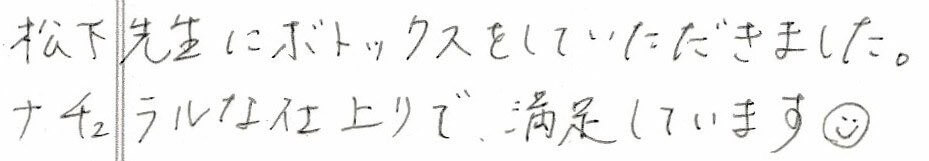 松下先生にボトックスをしていただきました。
ナチュラルな仕上りで、満足しています☺